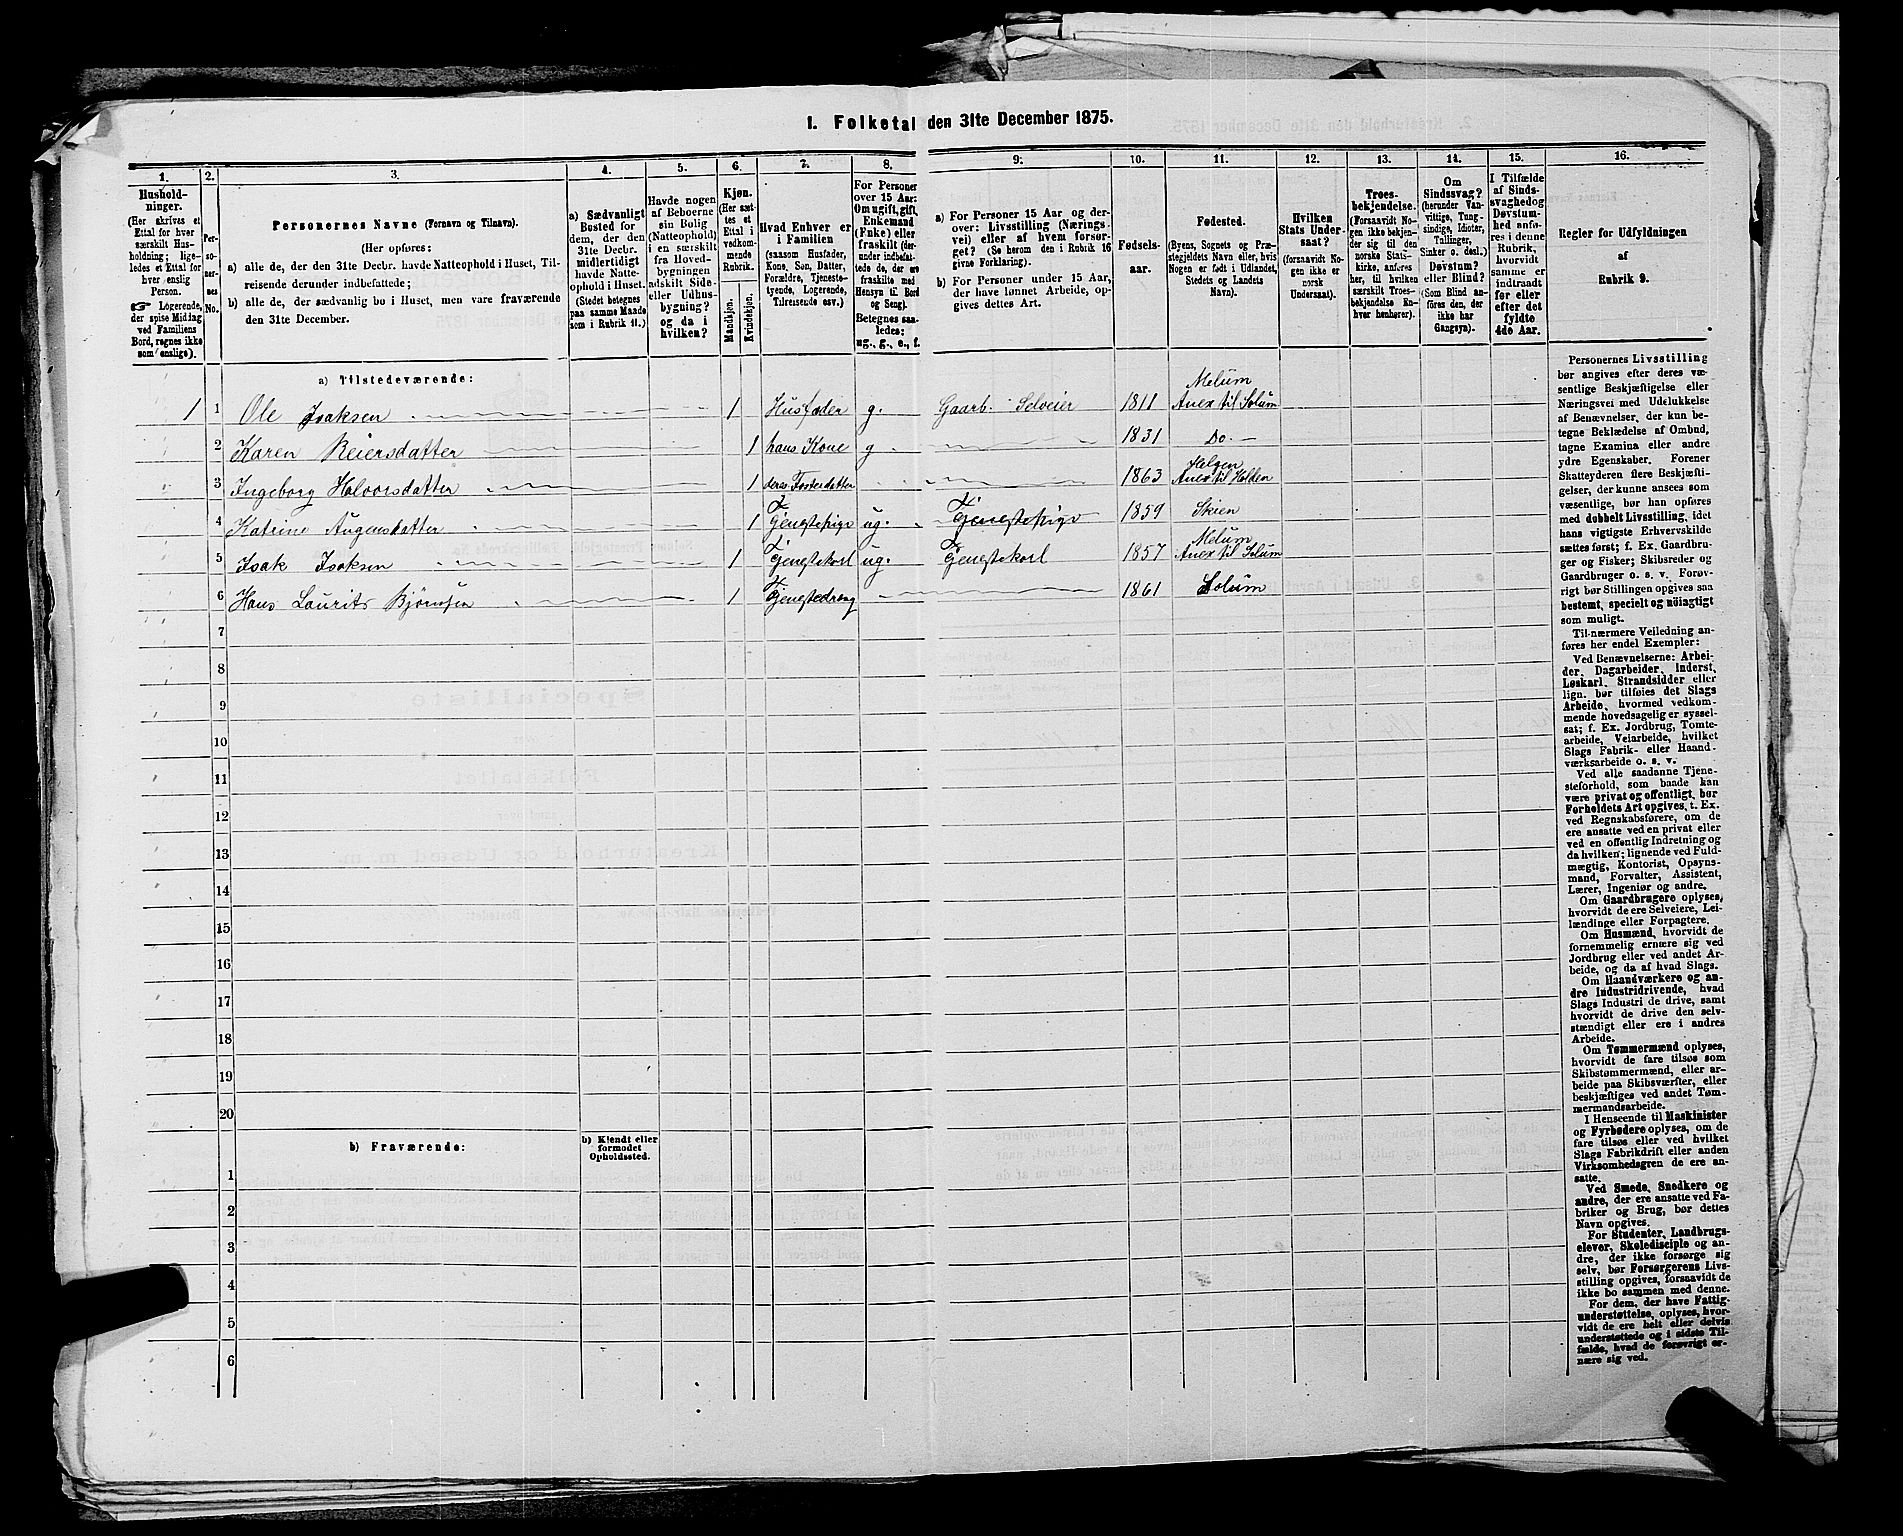 1. Folketal den 31te December 1875.
1.
Hushold-
ninger.
(Her skrives et
Ettal for hver
særskilt Hus-
holdning; lige-
ledes et Ettal for
hver enslig
Person.
☞ Logerende,
der spise Middag
ved Familiens
Bord, regnes ikke
som enslige).
2.
Per-
so-
ner-
nes
No.
3.
Personernes Navne (Fornavn og Tilnavn).
(Her opføres:
a) alle de, der den 31te Decbr. havde Natteophold i Huset, Til-
reisende derunder indbefattede;
b) alle de, der sædvanlig bo i Huset, men vare fraværende
den 31te December.
4.
a) Sædvanligt
Bosted for
dem, der den
31te Decbr.
midlertidigt
havde Natte-
ophold i Huset.
(Stedet betegnes
paa samme Maade
som i Rubrik 11.)
5.
Havde nogen
af Beboerne
sin Bolig
(Natteophold)
i en særskilt
fra Hoved-
bygningen
adskilt Side-
eller Udhus-
bygning?
og da i
hvilken?
6.
Kjøn.
(Her sæt-
tes et
Ettal i
vedkom-
mende
Rubrik.
Mandkjøn.
Kvindekjøn.
7.
Hvad Enhver er
i Familien
(saasom Husfader,
Kone, Søn, Datter,
Forældre, Tjeneste-
tyende, Logerende,
Tilreisende osv.)
8.
For Personer
over 15 Aar:
Om ugift, gift,
Enkemand
(Enke) eller
fraskilt (der-
under indbefat-
tede de, der ere
fraskilte med
Hensyn til Bord
og Seng).
Betegnes saa-
ledes:
ug., g., e., f.
9.
a) For Personer 15 Aar og der-
over: Livsstilling (Nærings-
vei) eller af hvem forsør-
get? (Se herom den i Rubrik 16
givne Forklaring).
b) For Personer under 15 Aar,
der have lønnet Arbeide, op-
gives dettes Art.
10.
Fødsels-
aar.
11.
Fødested.
(Byens, Sognets og Præ-
stegjeldets Navn eller, hvis
Nogen er født i Udlandet,
Stedets og Landets
Navn).
12.
Hvilken
Stats Under-
saat?
(forsaavidt No-
gen ikke er
norsk
Undersaat).
13.
Troes-
bekjendelse.
(Forsaavidt No-
gen ikke bekjen-
der sig til den
norske Stats-
kirke, anføres
her, til hvilken
særskilt Troes-
bekjendelse En-
hver henhører).
14.
Om
Sindssvag?
(herunder Van-
vittige, Tung-
sindige, Idioter,
Tullinger,
Sinker o. desl.)
Døvstum?
eller Blind?
(Som Blind an-
føres den, der
ikke har
Gangsyn).
15.
I Tilfælde
af Sinds-
svaghedog
Døvstum-
hed anfø-
res i denne
Rubrik,
hvorvidt
samme er
indtraadt
før eller
efter det
fyldte
4de Aar.
16.
Regler for Udfyldningen
af
Rubrik 9.
a) Tilstedeværende:
1 1 Ole Isaksen 1 Husfader g. Gaarb. Selveier 1811 Melum Anex til Solum
2 Karen Reiersdatter 1 hans Kone g 1831 Do. —
3 Ingeborg Halvorsdatter 1 deres Fosterdatter 1863 Helgen Anex til Holden
4 Katrine Augensdatter 1 Tjenestepige ug. Tjenestepige 1859 Skien
5 Isak Isaksen 1 Tjenestekarl ug. Tjenestekarl 1857 Melum Anex til Solum
6 Hans Laurits Bjørnsen 1 Tjenestedreng 1861 Solum
7
8
9
10
11
12
13
14
15
16
17
18
19
20
b) Fraværende:
b) Kjendt eller
formodet
Opholdssted.
1
2
3
4
5
6
Personernes Livsstilling
bør angives efter deres væ-
sentlige Beskjæftigelse eller
Næringsvei med Udelukkelse
af Benævnelser, der kun be-
tegne Beklædelse af Ombud,
tagne Examina eller andre
ydre Egenskaber. Forener
Skatteyderen flere Beskjæfti-
gelser, der kunne ansees som
væsentlige, bør han opføres
med dobbelt Livsstilling, idet
hans vigtigste Erhvervskilde
sættes først; f. Ex. Gaardbru-
ger og Fisker; Skibsreder og
Gaardbruger o. s. v. Forøv-
rigt bør Stillingen opgives saa
bestemt, specielt og nöiagtigt
som muligt.
Til nærmere Veiledning an-
føres her endel Exempler:
Ved Benævnelserne: Arbei-
der, Dagarbeider, Inderst,
Løskarl, Strandsidder eller
lign. bør tilføies det Slags
Arbeide, hvormed vedkom-
mende hovedsagelig er syssel-
sat; f. Ex. Jordbrug, Tomte-
arbeide, Veiarbeide, hvilket
Slags Fabrik- eller Haand-
værksarbeide o. s. v.
Ved alle saadanne Tjene-
steforhold, som baade kan
være privat og offentligt, bør
Forholdets Art opgives, t. Ex.
ved Regnskabsførere, om de
ere ansatte ved en privat eller
ved en offentlig Indretning og
da hvilken; lignende ved Fuld-
mægtig, Kontorist, Opsyns-
mand, Forvalter, Assistent,
Lærer, Ingeniør og andre.
Om Gaardbrugere oplyses,
hvorvidt de ere Selveiere, Lei-
lændinge eller Forpagtere.
Om Husmænd, hvorvidt de
fornemmelig ernære sig ved
Jordbrug eller ved andet Ar-
beide, og da af hvad Slags.
Om Haandværkere og an-
dre Industridrivende, hvad
Slags Industri de drive, samt
hvorvidt de drive den selv-
stændigt eller ere i andres
Arbeide.
Om Tømmermænd oplyses,
hvorvidt de fare tilsøs som
Skibstømmermænd, eller ar-
beide paa Skibsværfter, eller
beskjæftiges ved andet Tøm-
mermandsarbeide.
I Henseende til Maskinister
og Fyrbødere oplyses, om de
fare tilsøs eller ved hvilket
Slags Fabrikdrift eller anden
Virksomhedsgren de ere an-
satte.
Ved Smede, Snedkere og
andre, der ere ansatte ved Fa-
briker og Brug, bør dettes
Navn opgives.
For Studenter, Landbrugs-
elever, Skoledisciple og an-
dre, der ikke forsørge sig
selv, bør Forsørgerens Livs-
stilling opgives, forsaavidt de
ikke bo sammen med denne.
For dem, der have Fattig-
understøttelse, oplyses, hvor-
vidt de ere helt eller delvis
understøttede og i sidste Til-
fælde, hvad de forøvrigt er-
nære sig ved.